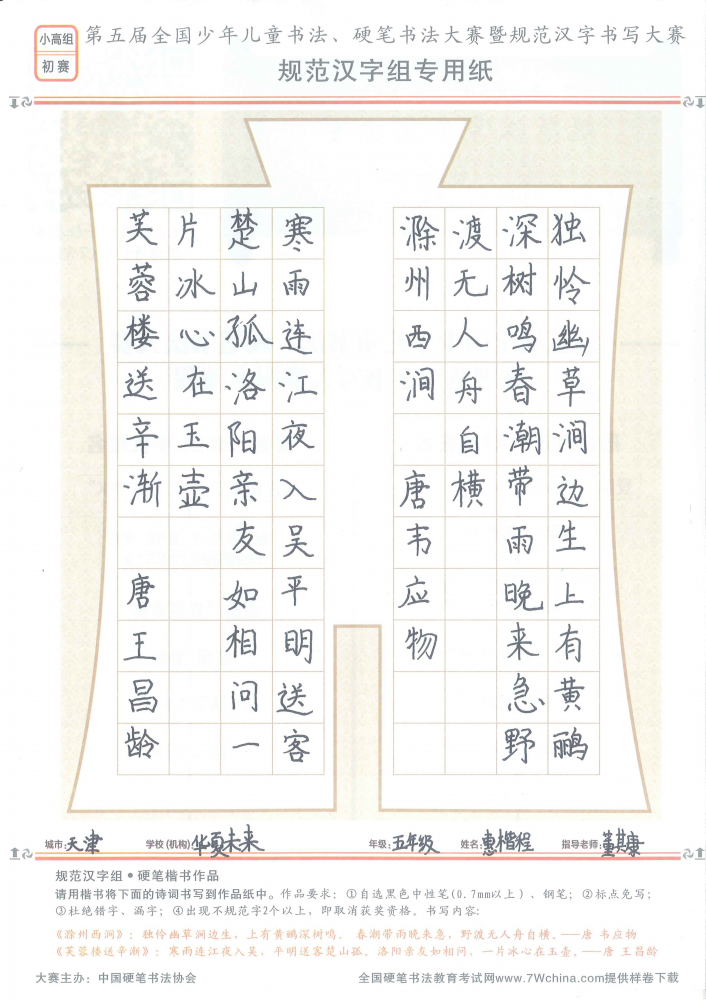 小高组
初赛
第五届全国少年儿童书法、硬笔书法大赛暨规范汉字书写大赛
规范汉字组专用纸
独怜幽草涧边生上有黄鹂
深树鸣春潮带雨晚来急野
渡无人舟自横
滁州西涧 唐韦应物
寒雨连江夜入吴平明送客
楚山孤洛阳亲友如相问一
片冰心在玉壶
芙蓉楼送辛渐 唐王昌龄
城市:天津 学校(机构):华夏未来 年级:五年级 姓名:惠楷程 指导老师:董其康
规范汉字组•硬笔楷书作品
请用楷书将下面的诗词书写到作品纸中。作品要求:①自选黑色中性笔(0.7mm以上)、钢笔;②标点免写;
③杜绝错字、漏字;④出现不规范字2个以上,即取消获奖资格。书写内容:
《滁州西涧》:独怜幽草涧边生,上有黄鹂深树鸣。 春潮带雨晚来急,野渡无人舟自横。——唐 韦应物
《芙蓉楼送辛渐》:寒雨连江夜入吴,平明送客楚山孤。洛阳亲友如相问,一片冰心在玉壶。——唐 王昌龄
大赛主办:中国硬笔书法协会 全国硬笔书法教育考试网www.7Wchina.com提供样卷下载